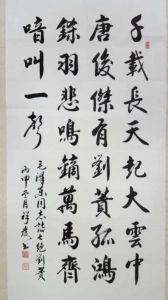 千載長天起大雲中
唐俊傑有劉蕡孤鴻
鎩羽悲鳴鏑萬馬齊
喑叫一聲
毛澤東同志詩七絕劉蕡
丙申月書